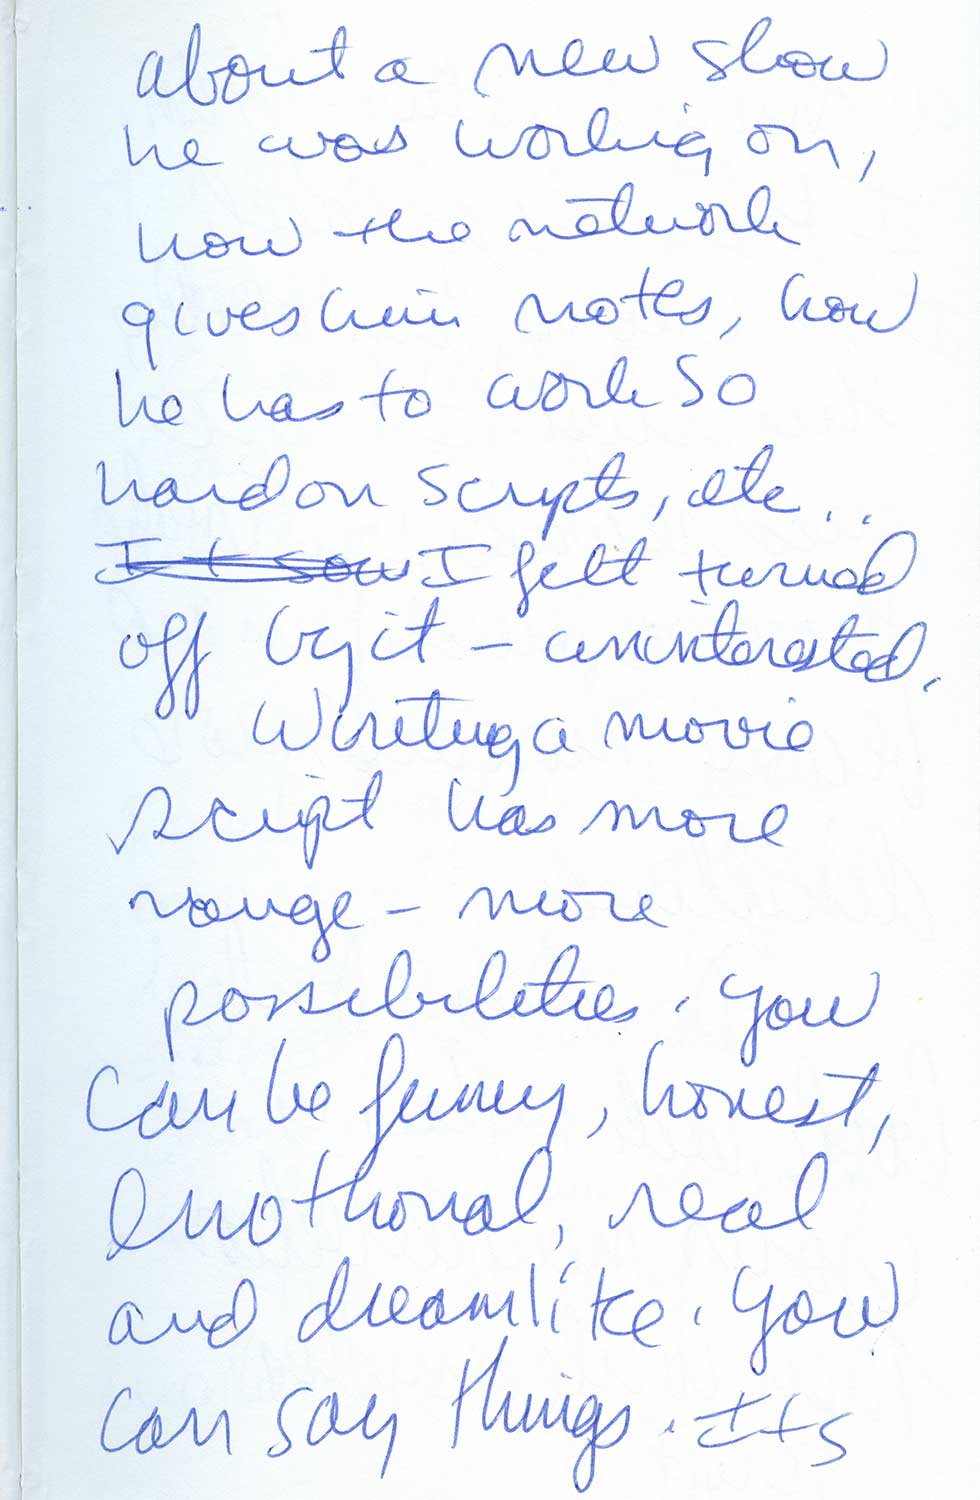 about a new show
he was working on,
how the network
gives him notes, how
he has to work so
hard on scripts, etc...
I felt turned
off by it – uninterested.
Writing a movie
script has more
range – more
possibilities. You
can be funny, honest,
emotional, real
and dreamlike. You
can say things. Its